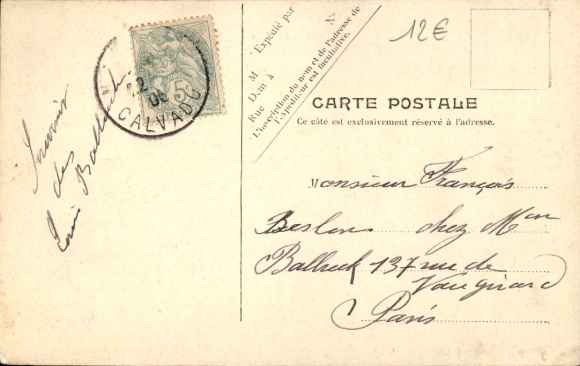 12€
N°
Expédié par
M
Dem^t à
Rue
L'inscription du nom et de l'adresse de
l'Expéditeur est facultative.
5c
CALVADOS
CARTE POSTALE
Ce côté est exclusivement réservé à l'adresse.
Souvenir
des
Monsieur François
Beslon chez Mon
Ballreck 137 rue de
Vaugirard
Paris